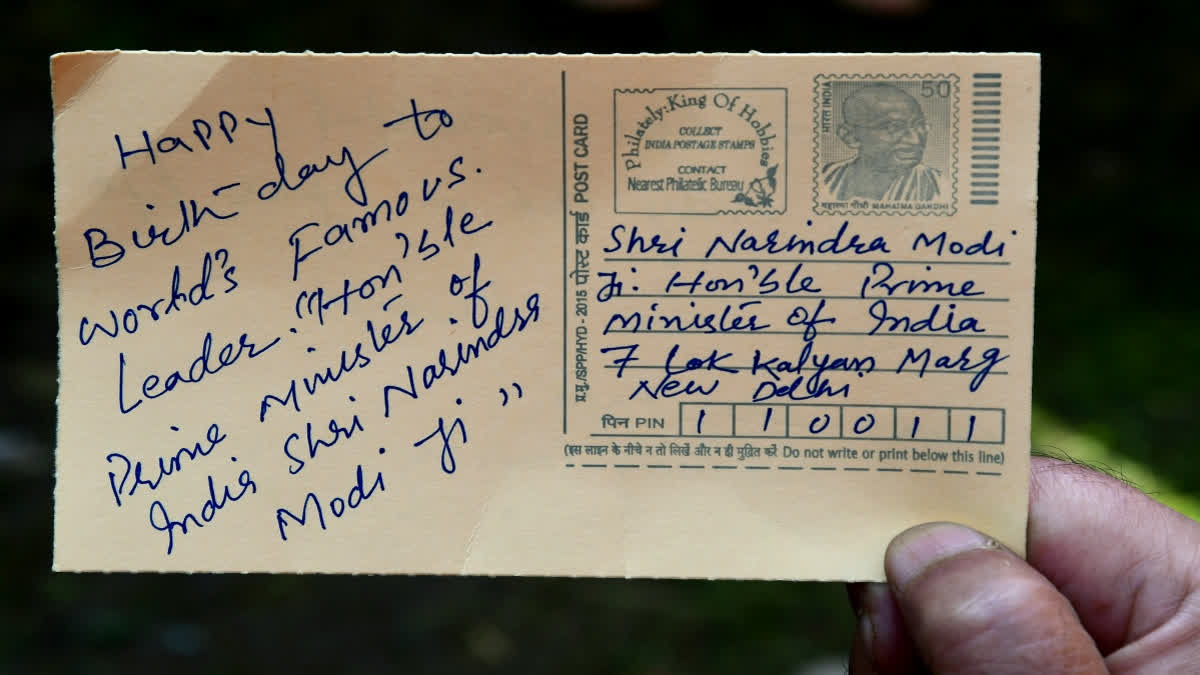 Happy
Birth-day to
world's Famous.
Leader. "Hon'ble
Prime Minister of
India Shri Narindra
Modi Ji "
प्र.मु./SPP/HYD - 2015 पोस्ट कार्ड POST CARD
Philately: King Of Hobbies
COLLECT
INDIA POSTAGE STAMPS
CONTACT
Nearest Philatelic Bureau
भारत INDIA
50
महात्मा गाँधी MAHATMA GANDHI
Shri Narindra Modi
Ji. Hon'ble Prime
Minister of India
7 Lok Kalyan Marg
New Delhi
पिन PIN 1 1 0 0 1 1
(इस लाइन के नीचे न तो लिखें और न ही मुद्रित करें Do not write or print below this line)